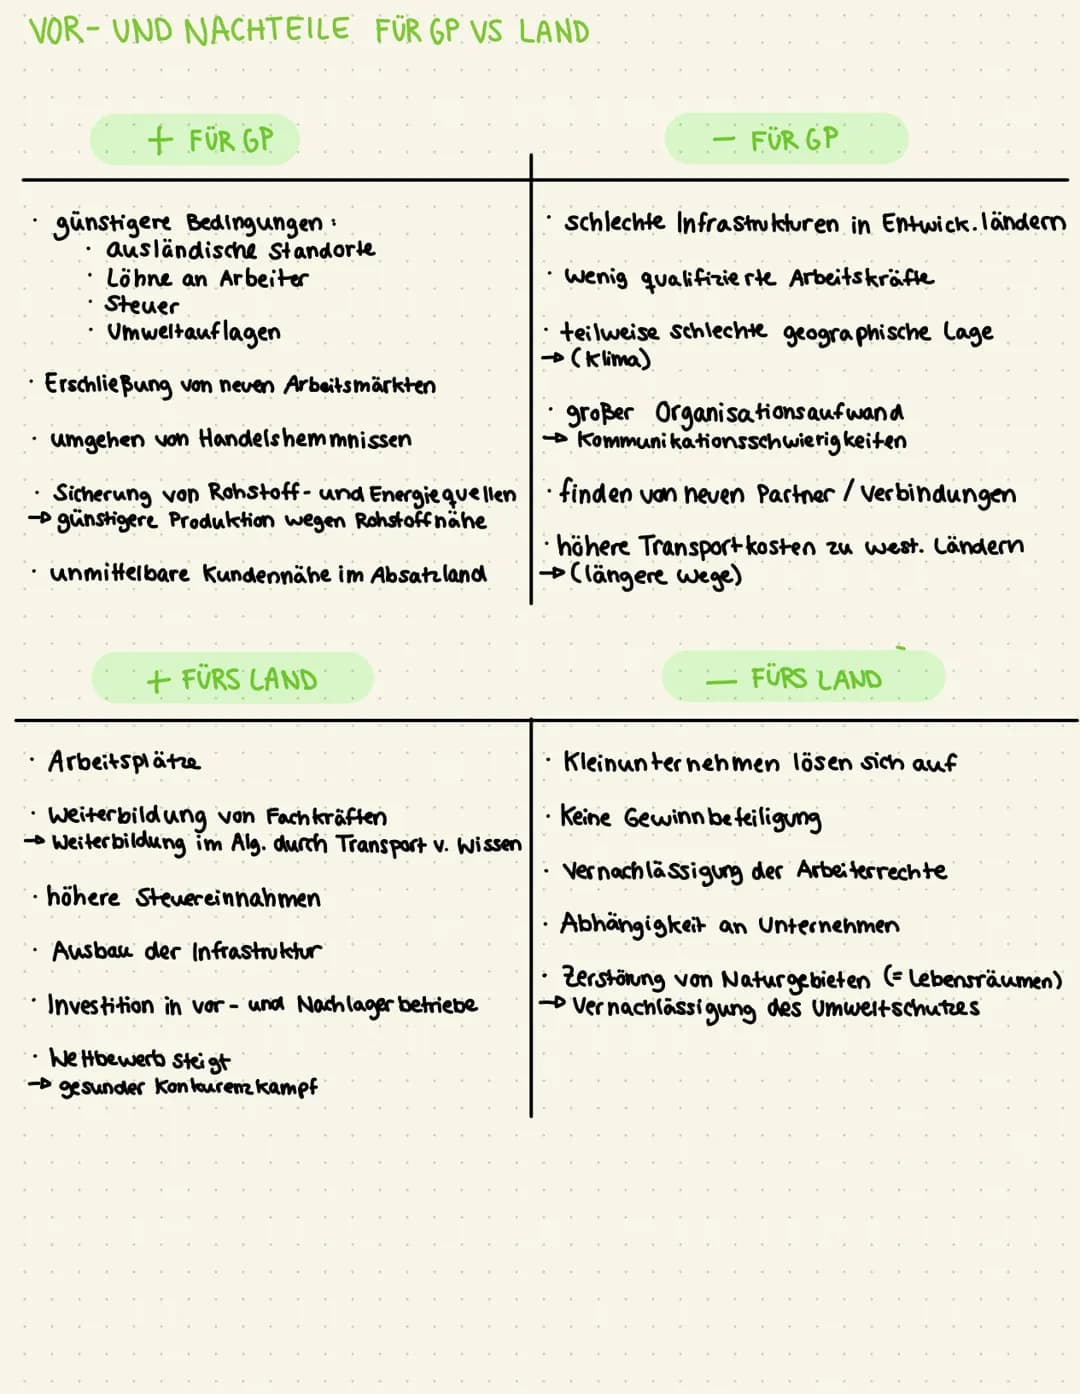 VOR- UND NACHTEILE FÜR GP VS LAND
+ FÜR GP
· günstigere Bedingungen:
· ausländische Standorte
· Löhne an Arbeiter
· Steuer
· Umweltauflagen
· Erschließung von neuen Arbeitsmärkten
· umgehen von Handelshemmnissen
· Sicherung von Rohstoff- und Energiequellen
→ günstigere Produktion wegen Rohstoffnähe
· unmittelbare Kundennähe im Absatzland
- FÜR GP
· schlechte Infrastrukturen in Entwick.ländern
· wenig qualifizierte Arbeitskräfte
· teilweise schlechte geographische Lage
→ (Klima)
· großer Organisationsaufwand
→ Kommunikationsschwierigkeiten
· finden von neuen Partner / Verbindungen
· höhere Transportkosten zu west. Ländern
→ (längere Wege)
+ FÜRS LAND
· Arbeitsplätze
· Weiterbildung von Fachkräften
→ Weiterbildung im Alg. durch Transport v. Wissen
· höhere Steuereinnahmen
· Ausbau der Infrastruktur
· Investition in vor- und Nachlagerbetriebe
· Wettbewerb steigt
→ gesunder Konkurenzkampf
- FÜRS LAND
· Kleinunternehmen lösen sich auf
· Keine Gewinnbeteiligung
· Vernachlässigung der Arbeiterrechte
· Abhängigkeit an Unternehmen
· Zerstörung von Naturgebieten (= Lebensräumen)
→ Vernachlässigung des Umweltschutzes